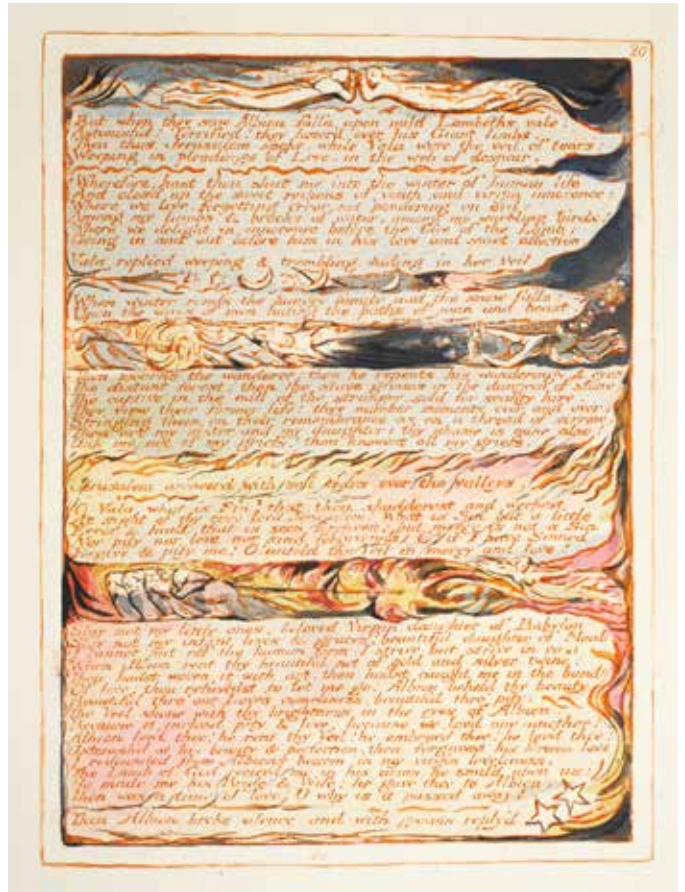 20
But when they saw Albion fall'n upon mild Lambeths vale:
Astonish'd! Terrified! they hover'd over his Giant limbs.
Then thus Jerusalem spoke, while Vala wove the veil of tears:
Weeping in pleadings of Love, in the web of despair.
Wherefore hast thou shut me into the winter of human life
And clos'd up the sweet regions of youth and virgin innocence:
Where we live, forgetting error, not pondering on evil:
Among my lambs & brooks of water, among my warbling birds:
Where we delight in innocence before the face of the Lamb:
Going in and out before him in his love and sweet affection.
Vala replied weeping & trembling, hiding in her veil.
When winter rends the hungry family and the snow falls:
Upon the ways of men hiding the paths of man and beast,
Then mourns the wanderer: then he repents his wanderings & eyes
The distant forest; then the slave groans in the dungeon of stone.
The captive in the mill of the stranger, sold for scanty hire.
They view their former life: they number moments over and over;
Stringing them on their remembrance as on a thread of sorrow.
Thou art my sister and my daughter! thy shame is mine also!
Ask me not of my griefs! thou knowest all my griefs.
Jerusalem answer'd with soft tears over the valleys.
O Vala what is Sin? that thou shudderest and weepest
At sight of thy once lov'd Jerusalem! What is Sin but a little
Error & fault that is soon forgiven; but mercy is not a Sin
Nor pity nor love nor kind forgiveness! O! if I have Sinned
Forgive & pity me! O! unfold thy Veil in mercy and love!
Slay not my little ones, beloved Virgin daughter of Babylon
Slay not my infant loves & graces, beautiful daughter of Moab
I cannot put off the human form I strive but strive in vain
When Albion rent thy beautiful net of gold and silver twine;
Thou hadst woven it with art, thou hadst caught me in the bands
Of love; thou refusedst to let me go: Albion beheld thy beauty
Beautiful thro' our Love's comeliness, beautiful thro' pity.
The Veil shone with thy brightness in the eyes of Albion,
Because it inclosd pity & love; because we lov'd one-another!
Albion lov'd thee! he rent thy Veil! he embrac'd thee! he lov'd thee!
Astonish'd at his beauty & perfection, thou forgavest his furious love:
I redounded from Albions bosom in my virgin loveliness.
The Lamb of God reciev'd me in his arms he smil'd upon us:
He made me his Bride & Wife: he gave thee to Albion.
Then was a time of love: O why is it passed away!
Then Albion broke silence and with groans reply'd